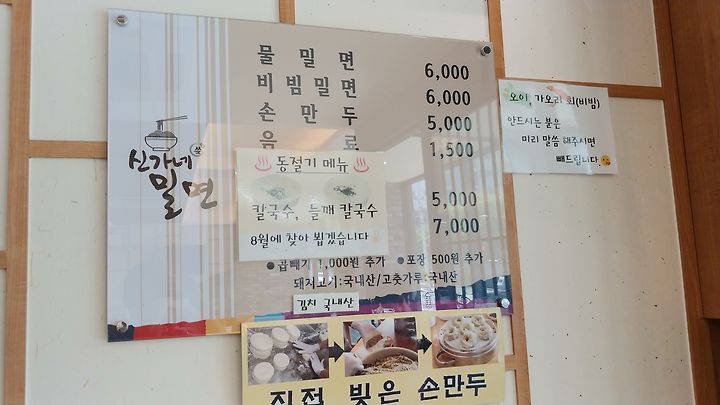 신가네
밀면
물밀면 6,000
비빔밀면 6,000
손만두 5,000
음료 1,500
동절기 메뉴
칼국수, 들깨 칼국수
8월에 찾아 뵙겠습니다
5,000
7,000
●곱빼기 1,000원 추가 ●포장 500원 추가
돼지고기:국내산/고춧가루:국내산
김치 국내산
직접 빚은 손만두
오이, 가오리 회(비빔)
안드시는 분은
미리 말씀 해주시면
빼드립니다.